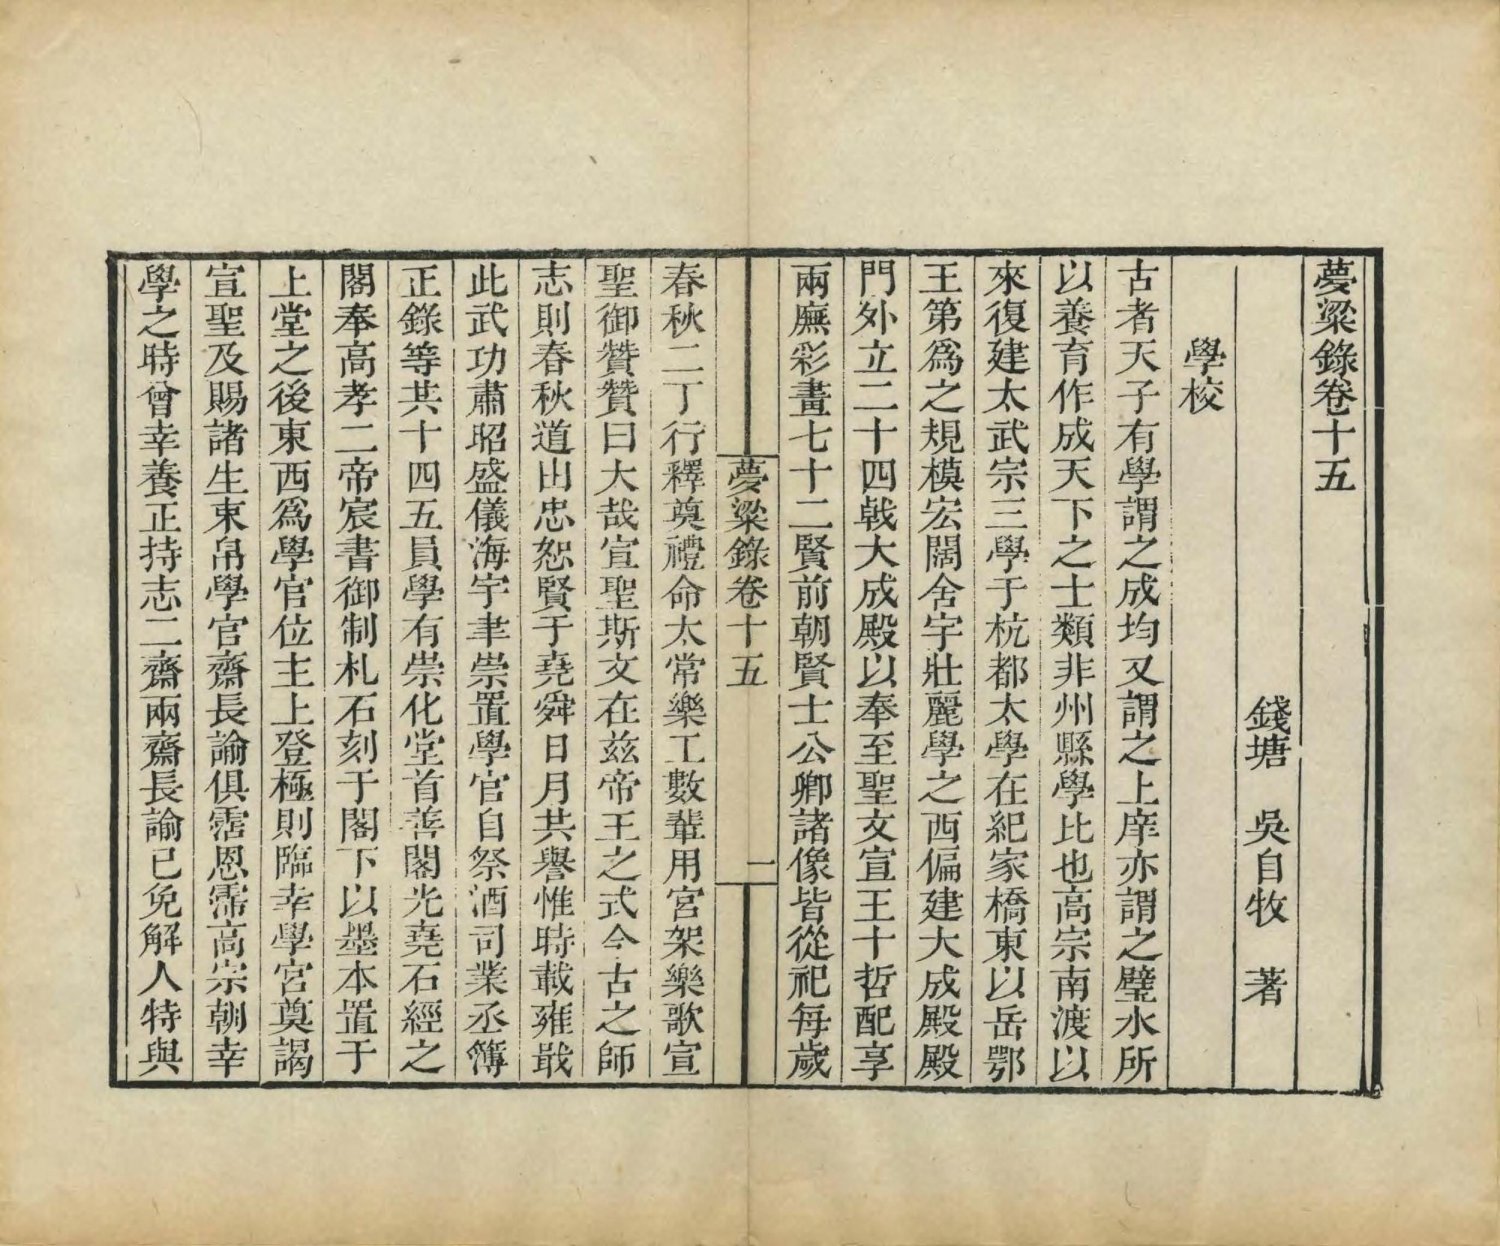 夢粱錄卷十五
錢塘　吳自牧　著
學校
古者天子有學謂之成均又謂之上庠亦謂之璧水所
以養育作成天下之士類非州縣學比也高宗南渡以
來復建太武宗三學于杭都太學在紀家橋東以岳鄂
王第爲之規模宏闊舍宇壯麗學之西偏建大成殿殿
門外立二十四戟大成殿以奉至聖文宣王十哲配享
兩廡彩畫七十二賢前朝賢士公卿諸像皆從祀每歲
夢粱錄卷十五
一
春秋二丁行釋奠禮命太常樂工數輩用宮架樂歌宣
聖御贊贊曰大哉宣聖斯文在茲帝王之式今古之師
志則春秋道由忠恕賢于堯舜日月共譽惟時載雍戢
此武功肅昭盛儀海宇聿崇置學官自祭酒司業丞簿
正錄等共十四五員學有崇化堂首善閣光堯石經之
閣奉高孝二帝宸書御制札石刻于閣下以墨本置于
上堂之後東西爲學官位主上登極則臨幸學宮奠謁
宣聖及賜諸生束帛學官齋長諭俱霑恩霈高宗朝幸
學之時曾幸養正持志二齋兩齋長諭已免解人特與